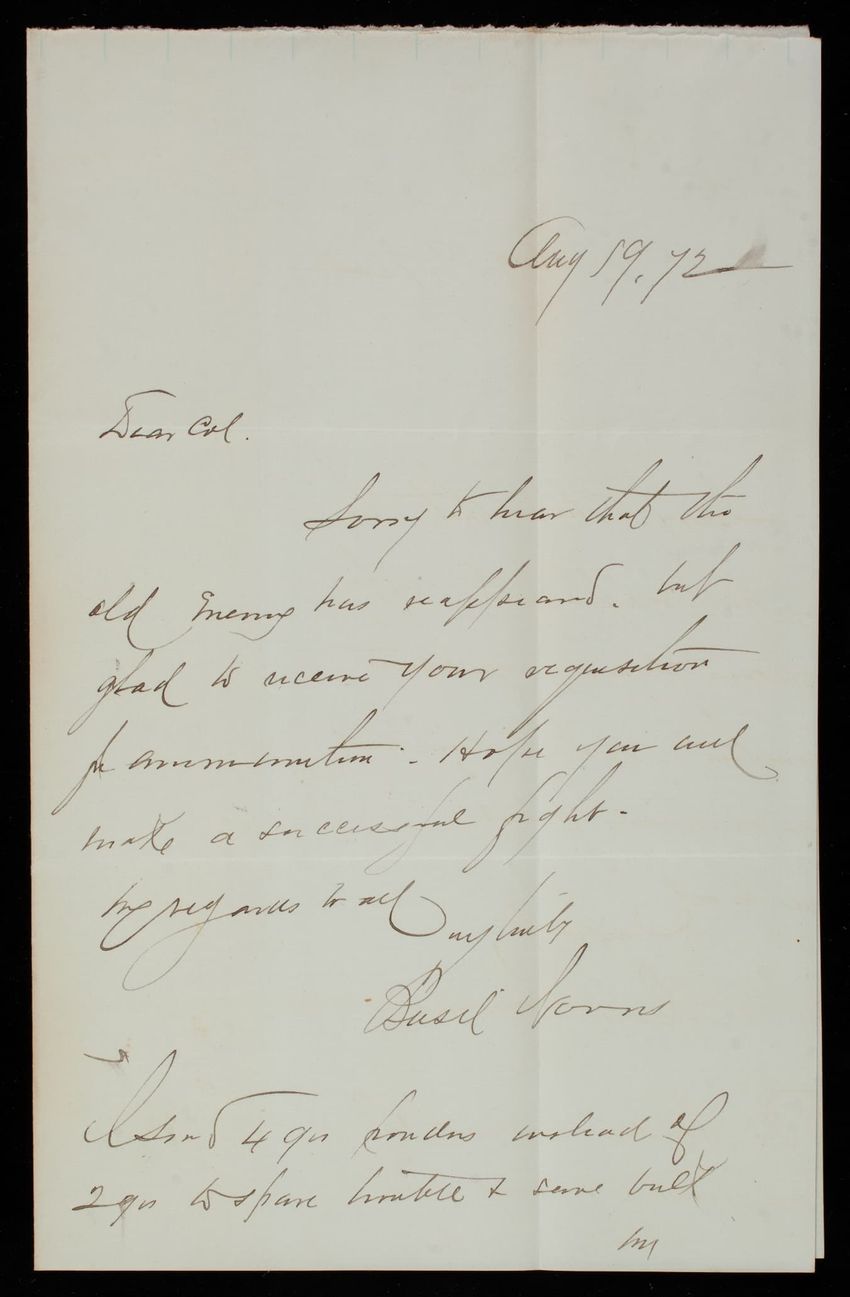 Aug 19, 72
Dear Col.
Sorry to hear that the
old Enemy has reappeared. but
glad to receive your requisition
for ammunition. - Hope you will
make a successful fight -
my regards to all
Basil Norris
I send 4 grs powders instead of
2 grs to spare trouble & save bulk